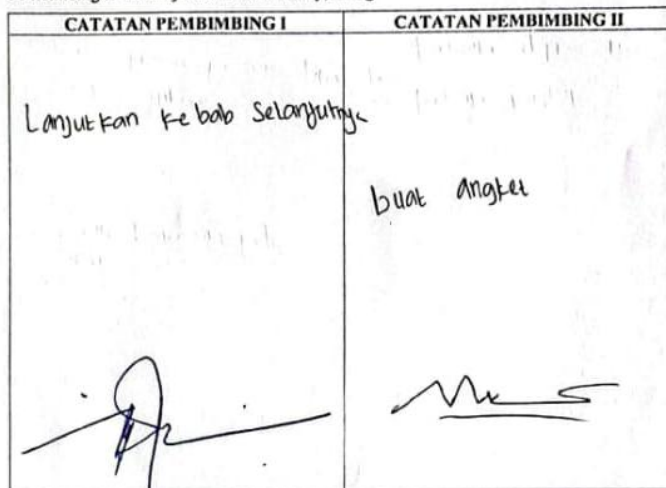 CATATAN PEMBIMBING I
CATATAN PEMBIMBING II
Lanjutkan ke bab Selanjutnya
buat angket